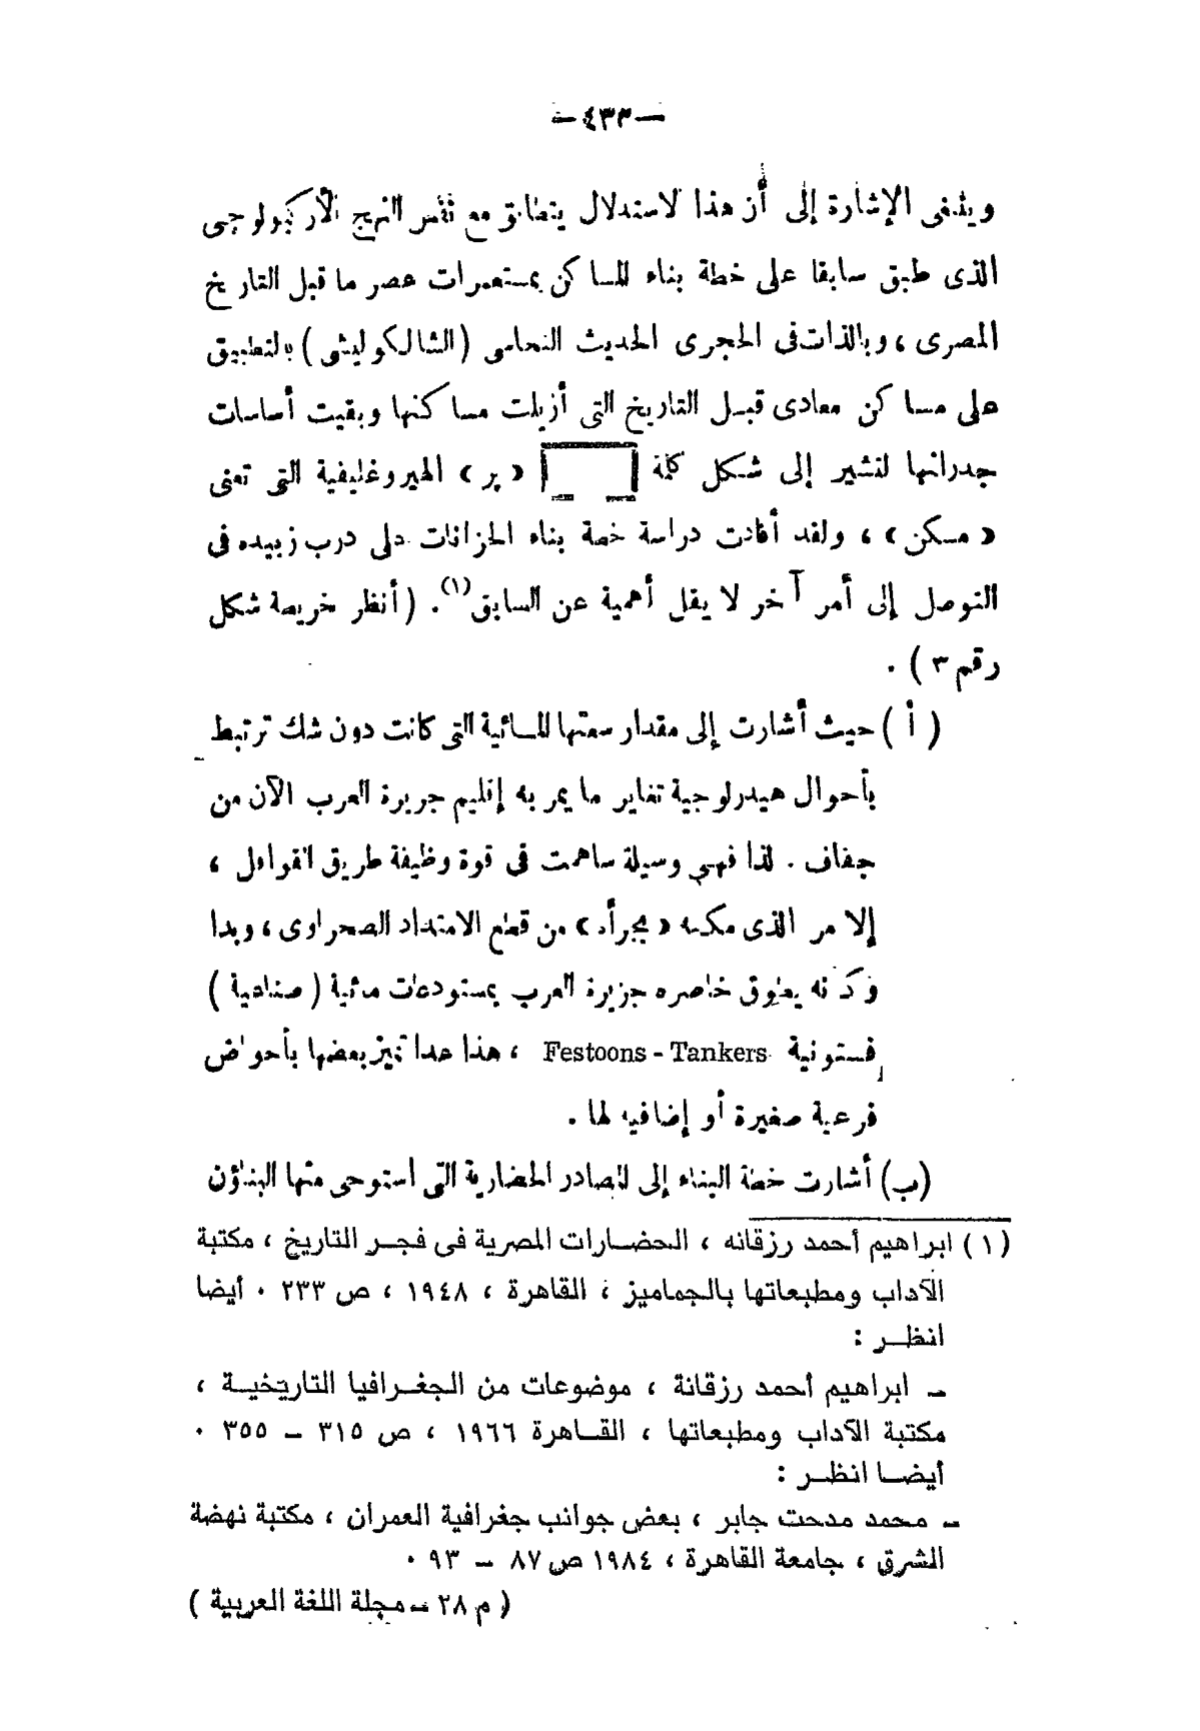 — ٤٣٣ —
وينبغى الإشارة إلى أن هذا لاستدلال يتطابق مع نفس النهج الأركيولوجى
الذى طبق سابقا على خطة بناء المساكن بمستعمرات عصر ما قبل التاريخ
المصرى ، وبالذات فى الحجرى الحديث النحاسى (الشالكوليثى) بالتطبيق
على مساكن معادى قبل التاريخ التى أزيلت مساكنها وبقيت أساسات
جدرانها لتشير إلى شكل كلمة « پر » الهيروغليفية التى تعنى
« مسكن » ، ولقد أفادت دراسة خطة بناء الخزانات على درب زبيده فى
التوصل إلى أمر آخر لا يقل أهمية عن السابق(١) . (أنظر خريطة شكل
رقم ٣ ) .
( أ ) حيث أشارت إلى مقدار سعتها المائية التى كانت دون شك ترتبط
بأحوال هيدرلوجية تغاير ما يمر به إقليم جزيرة العرب الآن من
جفاف . لذا فهى وسيلة ساهمت فى قوة وظيفة طريق القوافل ،
إلا مر الذى مكنه « بجرأة » من قطع الامتداد الصحراوى ، وبدا
وكأنه يطوق خاصره جزيرة العرب بمستودعات مائية ( صناعية )
فستونية Festoons - Tankers ، هذا عدا تميز بعضها بأحواض
فرعية صغيرة أو إضافيه لها .
(ب) أشارت خطة البناء إلى المصادر الحضارية التى استوحى منها البناؤن
(١) ابراهيم أحمد رزقانه ، الحضارات المصرية فى فجر التاريخ ، مكتبة
الآداب ومطبعاتها بالجماميز ، القاهرة ، ١٩٤٨ ، ص ٢٣٣ . أيضا
انظر :
ـ ابراهيم أحمد رزقانة ، موضوعات من الجغرافيا التاريخية ،
مكتبة الآداب ومطبعاتها ، القاهرة ١٩٦٦ ، ص ٣١٥ ــ ٣٥٥ .
أيضا انظر :
ـ محمد مدحت جابر ، بعض جوانب جغرافية العمران ، مكتبة نهضة
الشرق ، جامعة القاهرة ، ١٩٨٤ ص ٨٧ ــ ٩٣ .
( م ٢٨ ــ مجلة اللغة العربية )